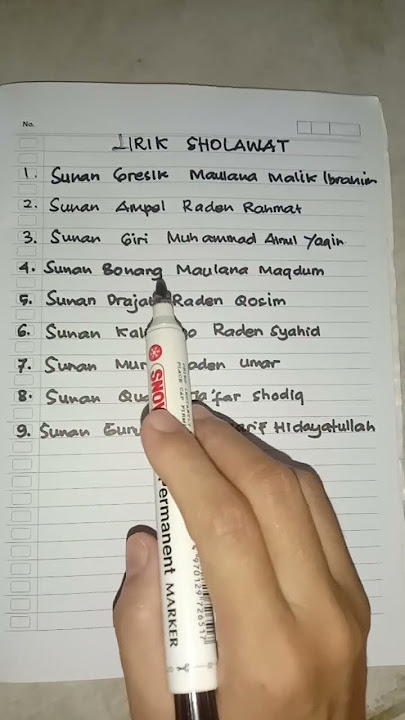 No.
LIRIK SHOLAWAT
1. Sunan Gresik Maulana Malik Ibrahim
2. Sunan Ampel Raden Rahmat
3. Sunan Giri Muhammad Ainul Yaqin
4. Sunan Bonang Maulana Maqdum
5. Sunan Drajat Raden Qosim
6. Sunan Raden Syahid
7. Sunan Umar
8. Sunan Shodiq
9. Sunan Hidayatullah
SNOW
Permanent MARKER
4970129726517